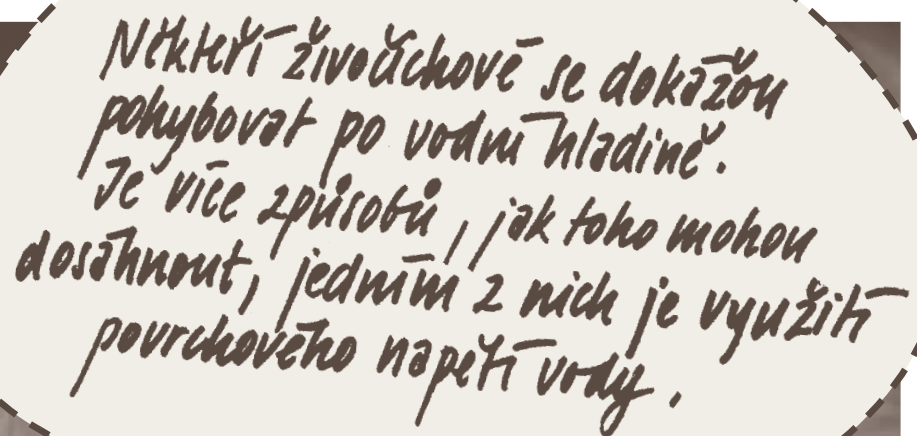 Někteří živočichové se dokážou
pohybovat po vodní hladině.
Je více způsobů, jak toho mohou
dosáhnout, jedním z nich je využití
povrchového napětí vody.